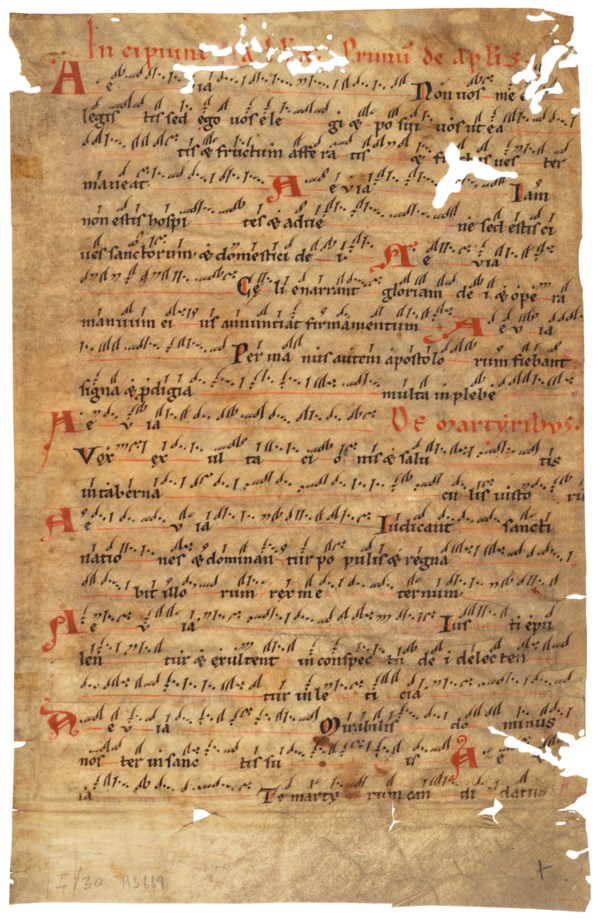 Incipiunt Primu de aplis.
A e v ia Non vos me e
legis tis sed ego vos ele gi & po sui vos ut ea
tis & fructum affe ra tis & ves ter
maneat A e v ia Iam
non estis hospi tes & adve ne sed estis ci
ves sanctorum & domestici de i A e v ia
Ce li enarrant gloriam de i & ope ra
manuum ei us annuntiat firmamentum A e v ia
Per ma nus autem apostolo rum fiebant
signa & pdigia multa in plebe
A e v ia De martyribus.
Vox ex ul ta ci o nis & salu tis
in taberna cu lis iusto ru
A e v ia Iudicant sancti
natio nes & dominan tur po pulis & regna
bit illo rum rex in e ternum
A e v ia Ius ti epu
len tur & exultent in conspec tu de i delecten
tur in le ti cia
A e v ia Mirabilis do minus
nos ter in sanc tis su is A e v
ia Te marty rum can di datus
I/30 MS669